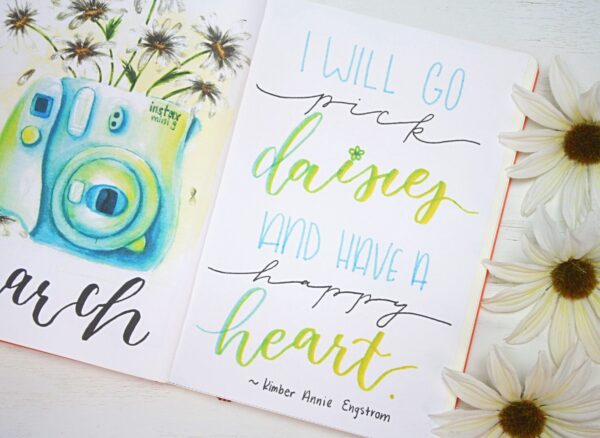 instax
mini 9
arch
I WILL GO
pick
daisies
AND HAVE A
happy
heart.
~ Kimber Annie Engstrom